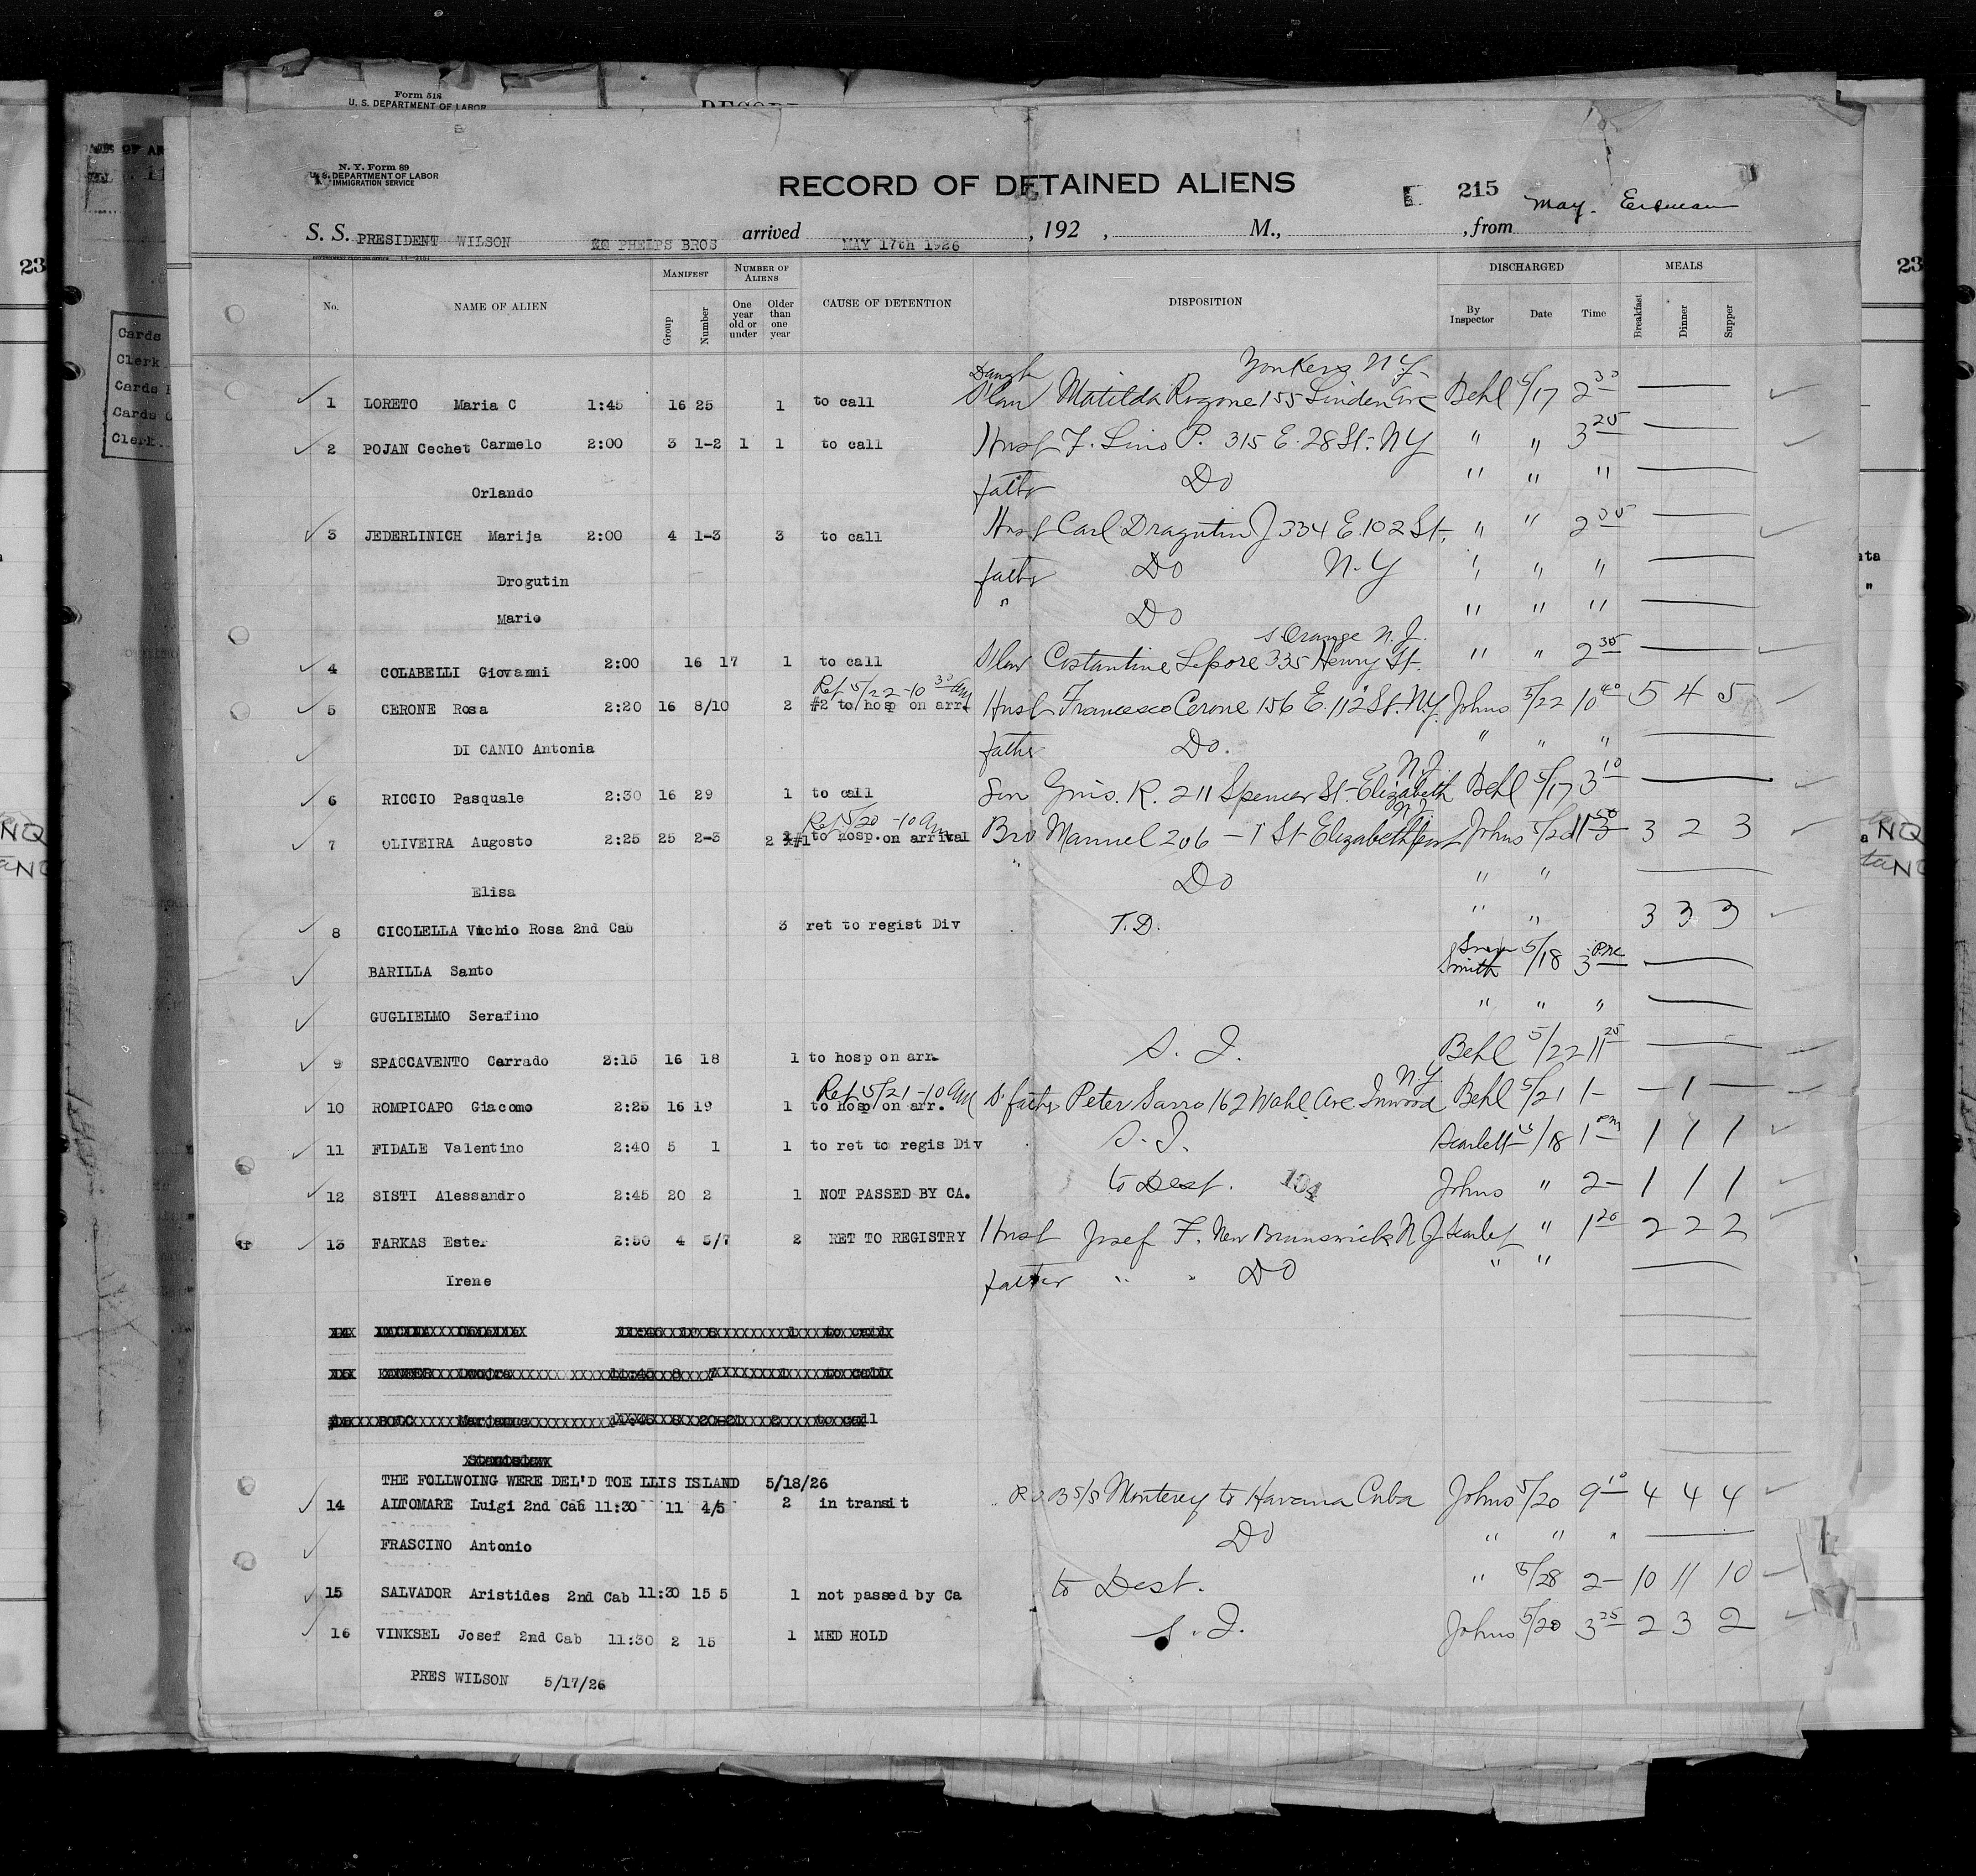 Form 518
U. S. DEPARTMENT OF LABOR
N. Y. Form 89
U. S. DEPARTMENT OF LABOR
IMMIGRATION SERVICE
RECORD OF DETAINED ALIENS
215
May.
S. S. PRESIDENT WILSON PHELPS BROS arrived MAY 17th 1926, 192 , M., , from
No. NAME OF ALIEN MANIFEST Group Number NUMBER OF ALIENS One year old or under Older than one year CAUSE OF DETENTION DISPOSITION DISCHARGED By Inspector Date Time MEALS Breakfast Dinner Supper
Cards
Clerk
Cards
Cards
Clerk
23
23
Daugh Yonkers N.Y.
1 LORETO Maria C 1:45 16 25 1 to call Slaw Matilda 155 Linden Ave Behl 5/17 2 30
2 POJAN Cechet Carmelo 2:00 3 1-2 1 1 to call Husb F. Lino P. 315 E. 28 St. N Y " " 3 20
Orlando father Do " " "
3 JEDERLINICH Marija 2:00 4 1-3 3 to call Husb Carl Dragutin J 334 E. 102 St. " " 2
Drogutin father Do N.Y " " "
Mario " Do " " "
S. Orange N. J.
4 COLABELLI Giovanni 2:00 16 17 1 to call Slaw Costantine Lepore 335 Henry St. " " 2
Ret 5/22 - 10 30 am
5 CERONE Rosa 2:20 16 8/10 2 #2 to hosp on arr. Husb Francesco Cerone 156 E. 112 St. N.Y. Johns 5/22 10 40 5 4 5
DI CANIO Antonia father Do. " " "
N.J.
6 RICCIO Pasquale 2:30 16 29 1 to call Son R. 211 Spencer St. Elizabeth Behl 5/17 3 10
Ret 5/20 - 10 am N.J.
7 OLIVEIRA Augosto 2:25 25 2-3 2 #1 to hosp. on arrival Bro Manuel 206 - 1 St Elizabethport Johns 5/20 3 2 3
Elisa " Do " "
8 CICOLELLA Vuchio Rosa 2nd Cab 3 ret to regist Div T.D. " " 3 3 3
BARILLA Santo Smith 5/18 3 PM
GUGLIELMO Serafino " " "
9 SPACCAVENTO Carrado 2:15 16 18 1 to hosp on arr. S. I. Behl 5/22 11 25
Ret 5/21 - 10 am N.Y.
10 ROMPICAPO Giacomo 2:25 16 19 1 to hosp on arr. S. father Peter Sarro 162 Wahl Ave Inwood Behl 5/21 1- - 1 -
11 FIDALE Valentino 2:40 5 1 1 to ret to regis Div S. I. Scarlett 5/18 1 PM 1 1 1
12 SISTI Alessandro 2:45 20 2 1 NOT PASSED BY CA. to Dest. 104 Johns " 2- 1 1 1
13 FARKAS Ester 2:50 4 5/7 2 RET TO REGISTRY Husb Josef F. New Brunswick N J Scarlet " 1 20 2 2 2
Irene father " " DO " "
THE FOLLWOING WERE DEL'D TOE LLIS ISLAND 5/18/26
14 ALTOMARE Luigi 2nd Cab 11:30 11 4/5 2 in transit S/S Monterey to Havana Cuba Johns 5/20 9 10 4 4 4
FRASCINO Antonio Do " " "
15 SALVADOR Aristides 2nd Cab 11:30 15 5 1 not passed by Ca to Dest. " 5/28 2- 10 11 10
16 VINKSEL Josef 2nd Cab 11:30 2 15 1 MED HOLD S. I. Johns 5/20 3 25 2 3 2
PRES WILSON 5/17/26